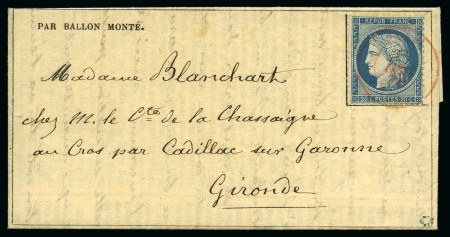 PAR BALLON MONTÉ.
REPUB. FRANC.
20.C. POSTES. 20.C.
Madame Blanchart
chez M. le Cte de la Chassaigne
au Cros par Cadillac sur Garonne
Gironde